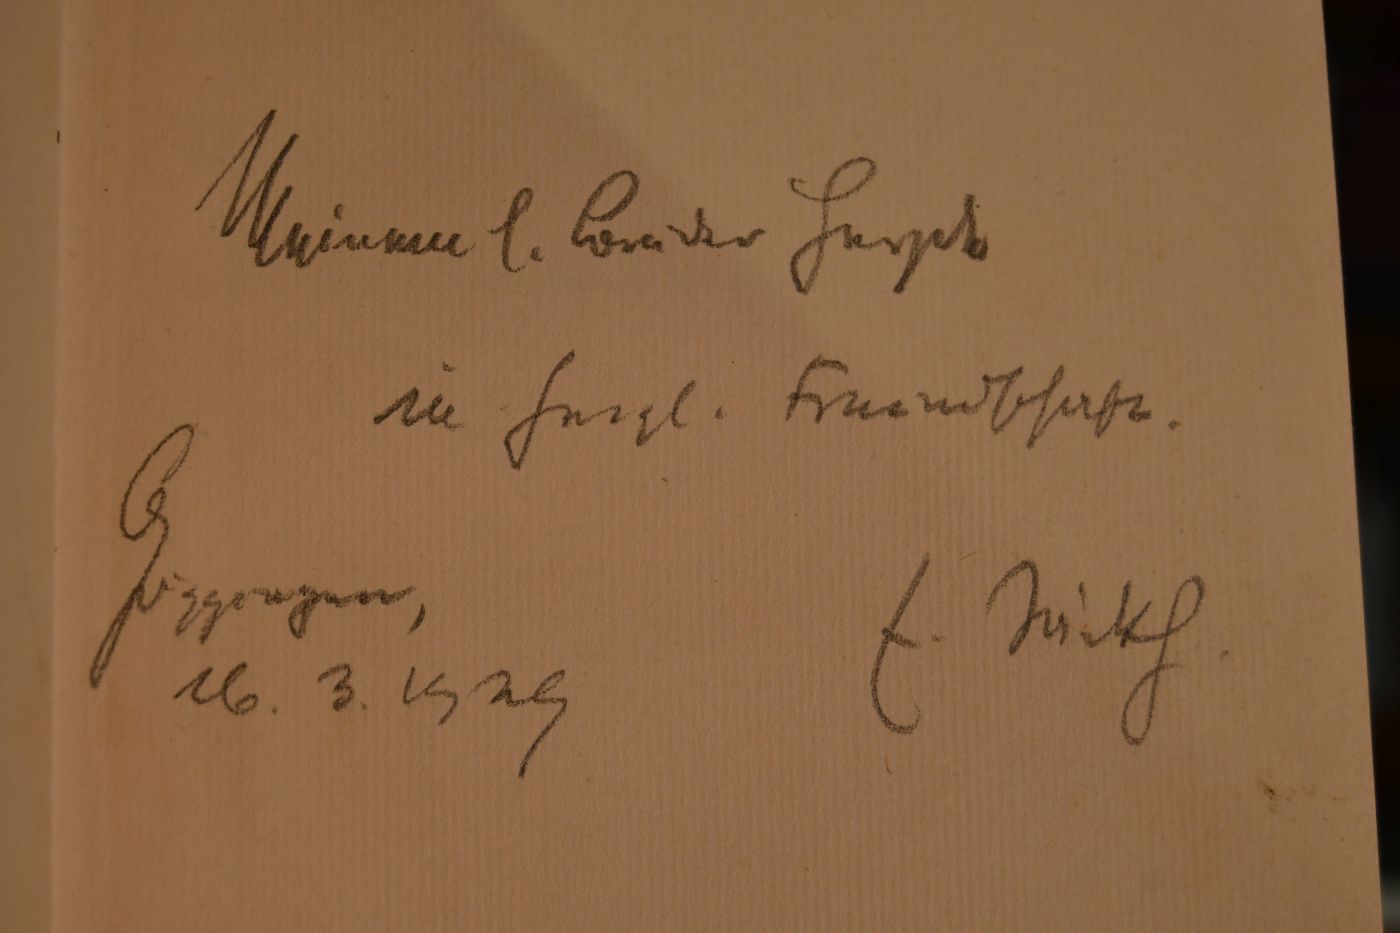 Meinem l. Bruder
in herzl. Freundschaft.
Göggingen,
16. 3. 1929
E.